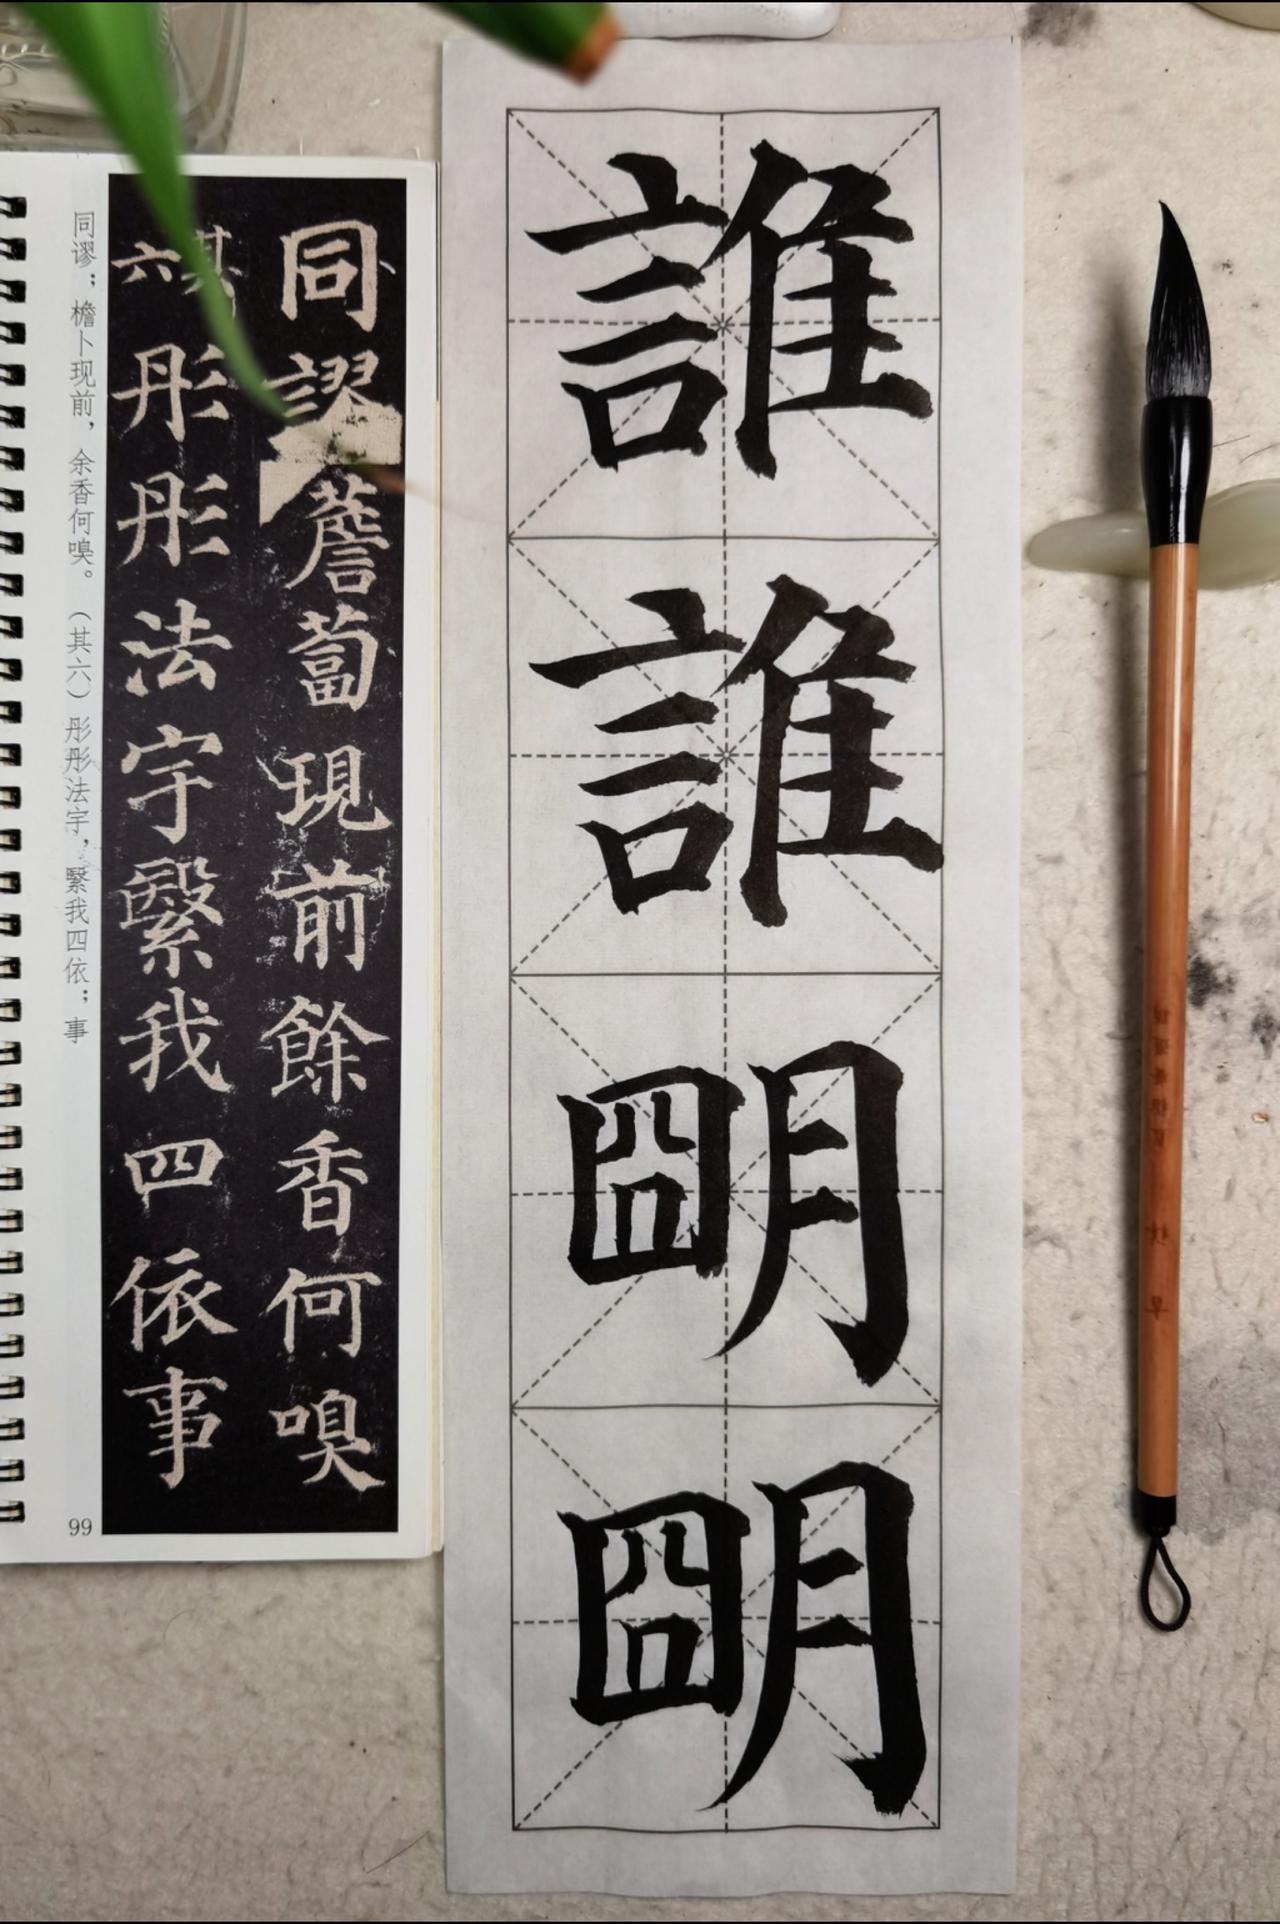 誰誰朙朙
同謬薝蔔現前餘香何嗅
其六彤彤法宇繄我四依事
同谬；檐卜现前，余香何嗅。（其六）彤彤法宇，繄我四依；事
99